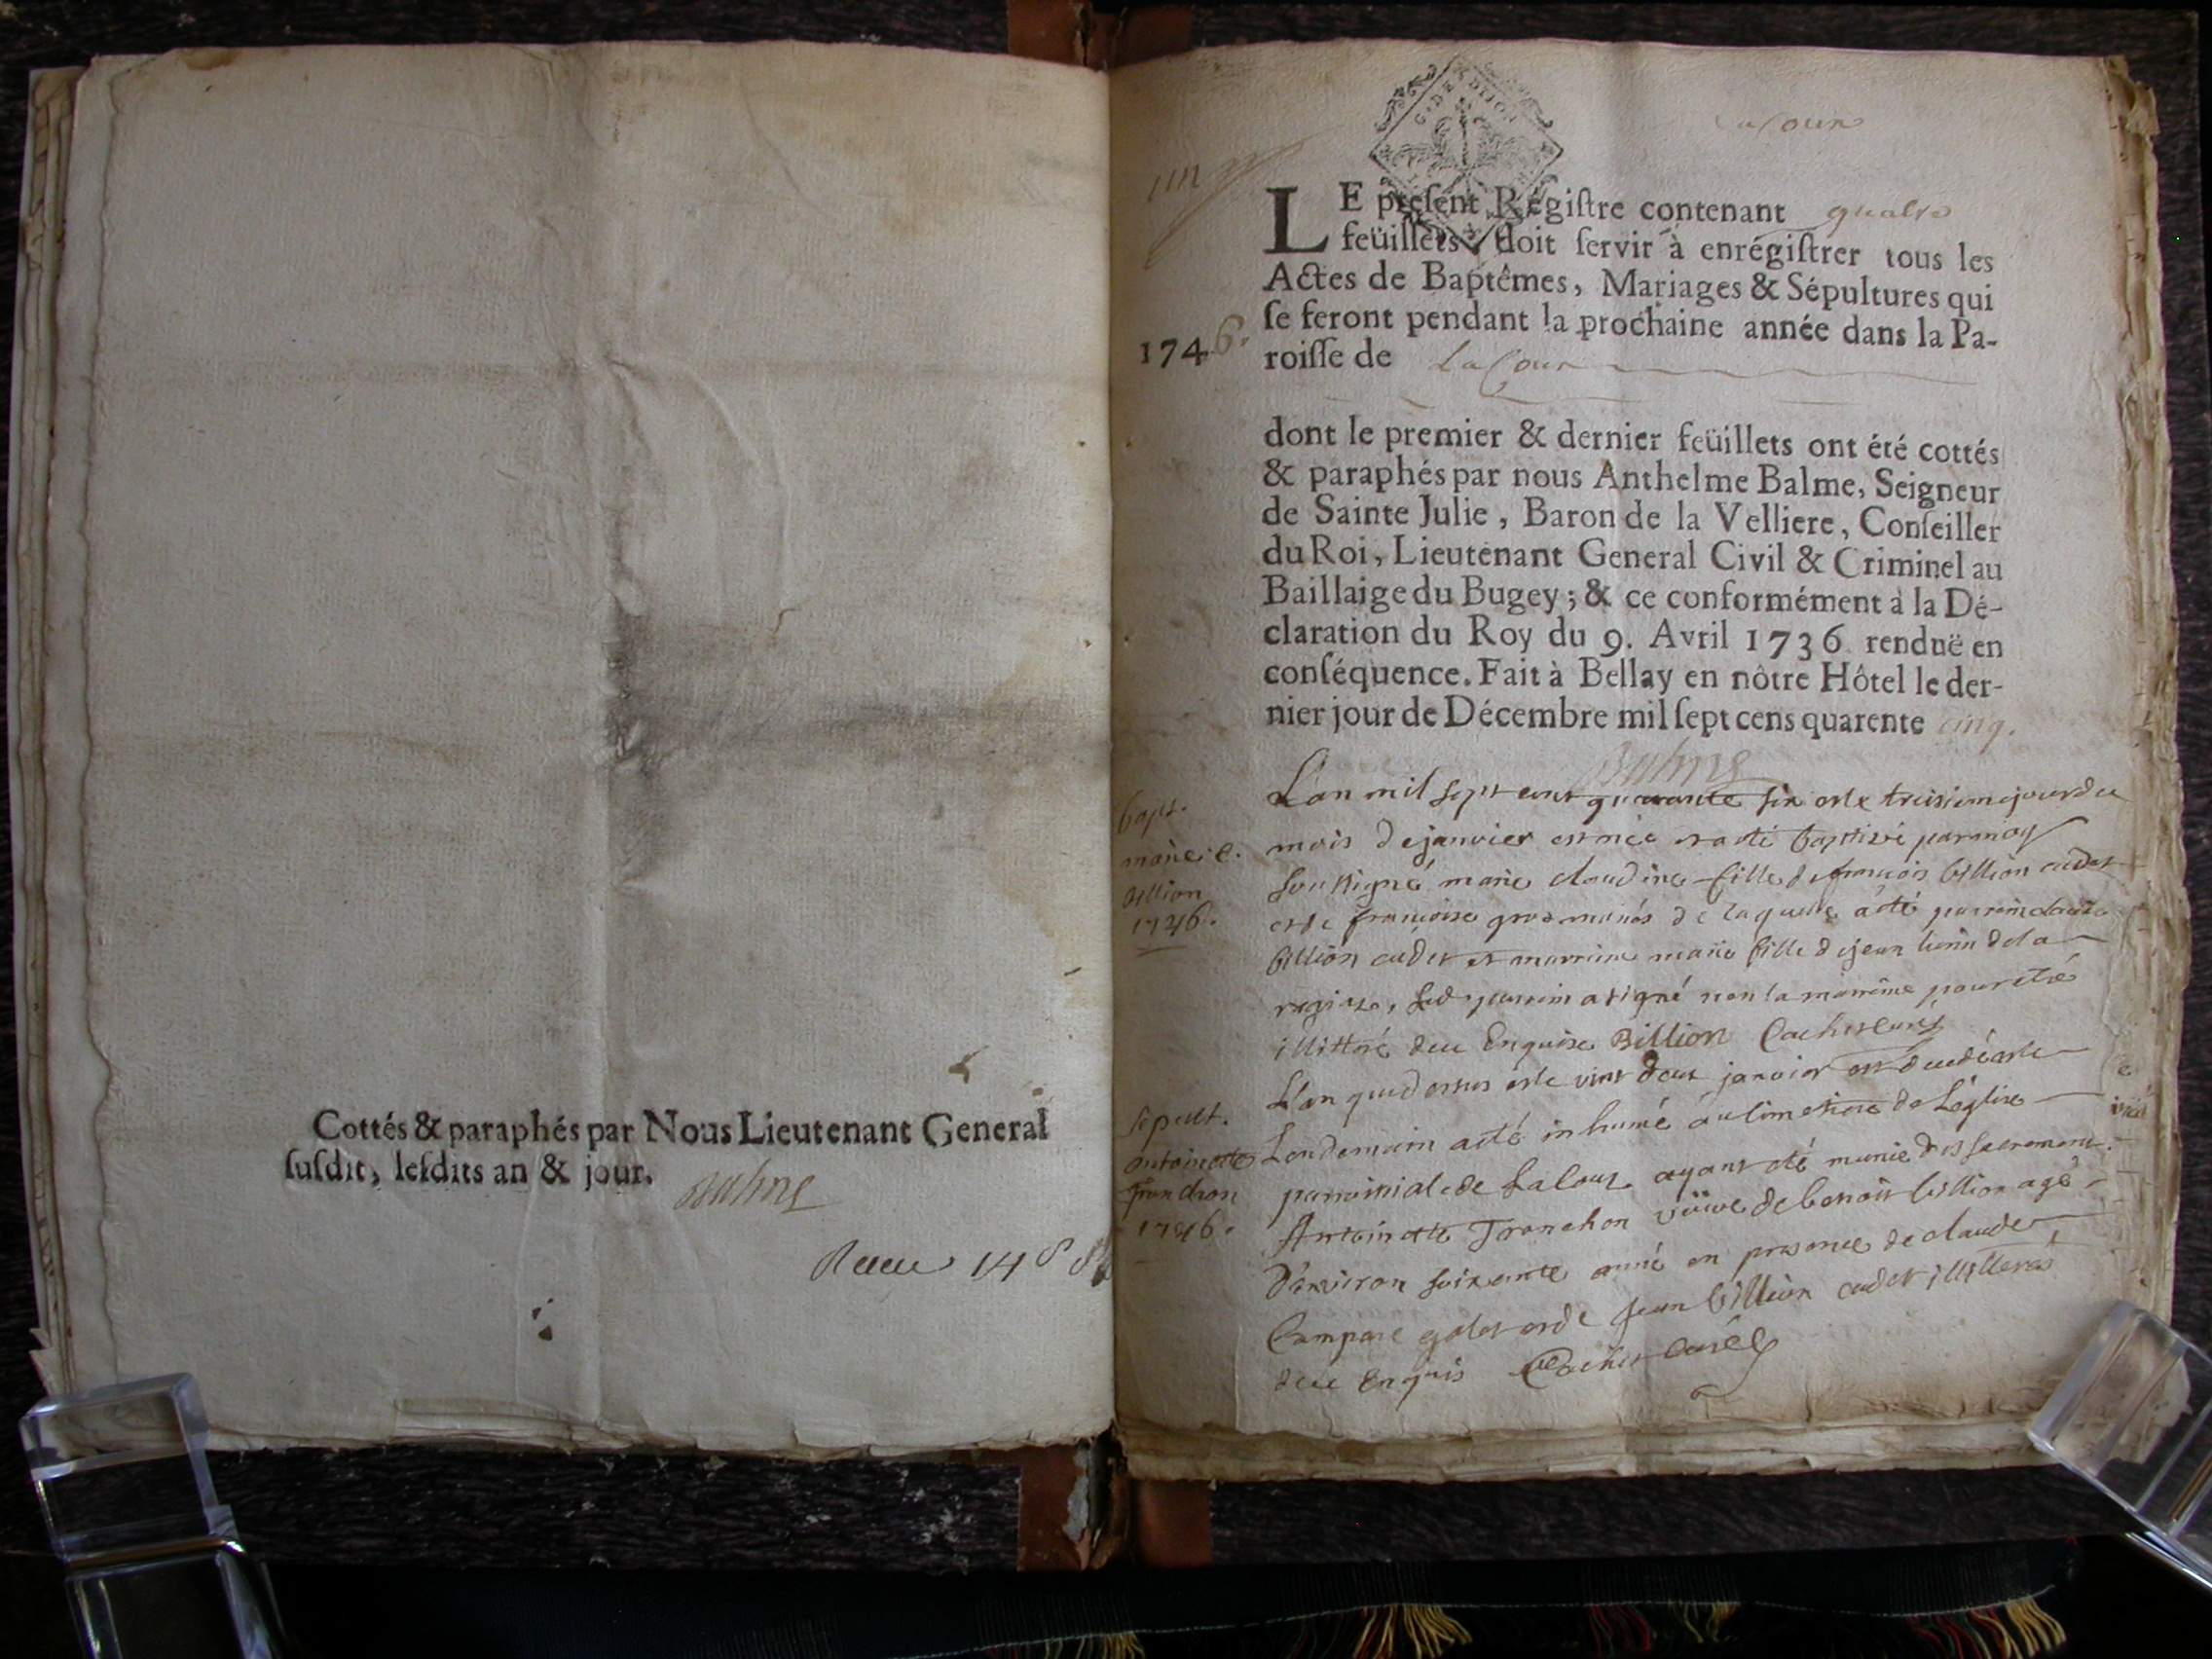 Cottés & paraphés par Nous Lieutenant General
ſuſdit, leſdits an & jour.
Balme
un
LE preſent Régiſtre contenant quatre
feüillets doit ſervir à enrégiſtrer tous les
Actes de Baptêmes, Mariages & Sépultures qui
ſe feront pendant la prochaine année dans la Pa-
1746. roiſſe de La Cour
dont le premier & dernier feüillets ont été cottés
& paraphés par nous Anthelme Balme, Seigneur
de Sainte Julie, Baron de la Velliere, Conſeiller
du Roi, Lieutenant General Civil & Criminel au
Baillaige du Bugey; & ce conformément à la Dé-
claration du Roy du 9. Avril 1736 renduë en
conſéquence. Fait à Bellay en nôtre Hôtel le der-
nier jour de Décembre mil ſept cens quarente cinq.
Balme
bapt.
marie c.
billion
1746.
L'an mil sept cent quarante six et le troisieme jour du
mois de janvier est née et a été baptisée par moy
soussigné marie claudine fille de françois billion cadet
et de françoise de laquelle a été parrain claude
billion cadet et marraine marie fille de jean de la
led parrain a signé non la marraine pour etre
illitteré deue Enquise Billion Cachet curé
sepult.
antoinette
Tronchon
1746.
L'an que dessus et le vint deux janvier est decedé et le
Lendemain a été inhumé au cimetiere de L'église
parroissiale de La Cour ayant été munie des sacrements
Antoinette Tronchon veuve de benoit billion agé
d'environ soixante anné en presence de claude
Compare et de jean billion cadet illitterés
deue Enquis Cachet curé